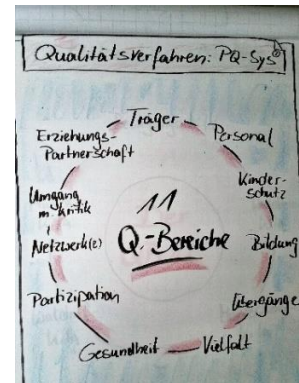 Qualitätsverfahren: PQ-Sys®
Träger
Personal
Kinder-
schutz
Bildung
Übergänge
Vielfalt
Gesundheit
Partizipation
Netzwerk(e)
Umgang
m. Kritik
Erziehungs-
Partnerschaft
11
Q.-Bereiche